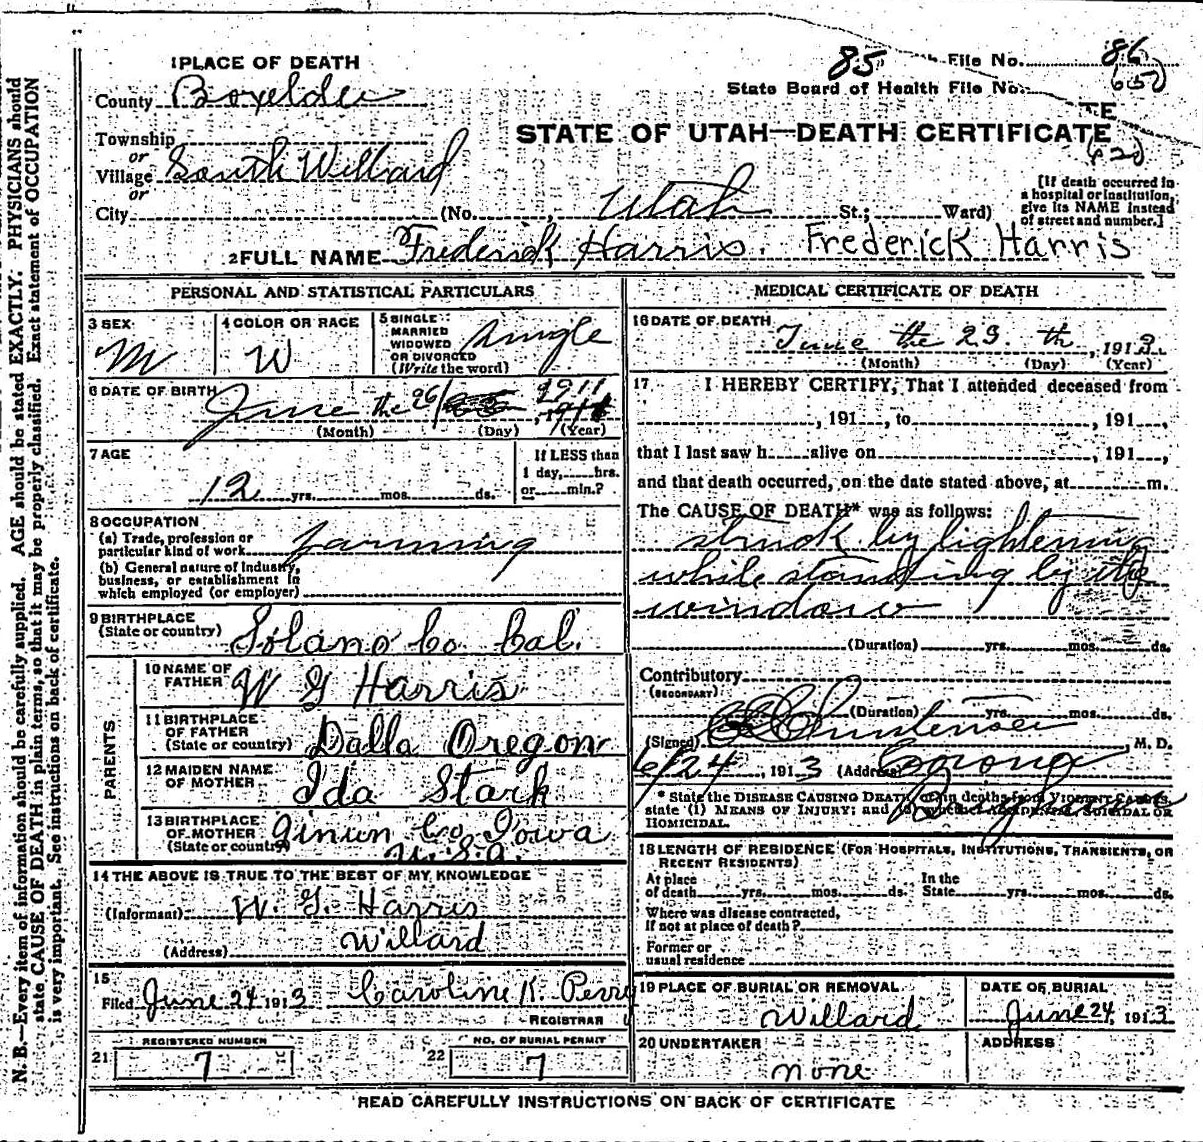 1 PLACE OF DEATH
85
File No. 86
(65)
County Boxelder
State Board of Health File No.
Township
STATE OF UTAH—DEATH CERTIFICATE
or
Village South Willard
or
City (No. Utah St.; Ward)
[If death occurred in a hospital or institution, give its NAME instead of street and number.]
2 FULL NAME Frederick Harris. Frederick Harris
PERSONAL AND STATISTICAL PARTICULARS
3 SEX
M
4 COLOR OR RACE
W
5 SINGLE
MARRIED
WIDOWED
OR DIVORCED
(Write the word)
single
6 DATE OF BIRTH
June the 26
(Month) (Day) (Year)
7 AGE
12 yrs. mos. ds.
If LESS than
1 day, hrs.
or min.?
8 OCCUPATION
(a) Trade, profession or
particular kind of work farming
(b) General nature of industry,
business, or establishment in
which employed (or employer)
9 BIRTHPLACE
(State or country) Solano Co. Cal.
PARENTS
10 NAME OF
FATHER W G Harris
11 BIRTHPLACE
OF FATHER
(State or country) Dalla Oregon
12 MAIDEN NAME
OF MOTHER Ida Stark
13 BIRTHPLACE
OF MOTHER
(State or country) Co. Iowa
U.S.A.
14 THE ABOVE IS TRUE TO THE BEST OF MY KNOWLEDGE
(Informant) W. G. Harris
(Address) Willard
15
Filed June 24 1913 Caroline K. Perry
REGISTRAR
21
REGISTERED NUMBER
7
22
NO. OF BURIAL PERMIT
7
MEDICAL CERTIFICATE OF DEATH
16 DATE OF DEATH
June the 23. th, 1913.
(Month) (Day) (Year)
17 I HEREBY CERTIFY, That I attended deceased from
, 191 , to , 191 ,
that I last saw h alive on , 191 ,
and that death occurred, on the date stated above, at m.
The CAUSE OF DEATH* was as follows:
struck by lightening
while standing by the
window
(Duration) yrs. mos. ds.
Contributory
(SECONDARY)
(Duration) yrs. mos. ds.
(Signed) M. D.
6/24, 1913 (Address)
* State the DISEASE CAUSING DEATH, or in deaths from VIOLENT CAUSES,
state (1) MEANS OF INJURY; and (2) whether ACCIDENTAL, SUICIDAL OR
HOMICIDAL.
18 LENGTH OF RESIDENCE (FOR HOSPITALS, INSTITUTIONS, TRANSIENTS, OR
RECENT RESIDENTS)
At place
of death yrs. mos. ds.
In the
State yrs. mos. ds.
Where was disease contracted,
if not at place of death?
Former or
usual residence
19 PLACE OF BURIAL OR REMOVAL
Willard
DATE OF BURIAL
June 24, 1913
20 UNDERTAKER
none
ADDRESS
READ CAREFULLY INSTRUCTIONS ON BACK OF CERTIFICATE
N. B.—Every item of information should be carefully supplied. AGE should be stated EXACTLY. PHYSICIANS should
state CAUSE OF DEATH in plain terms, so that it may be properly classified. Exact statement of OCCUPATION
is very important. See instructions on back of certificate.